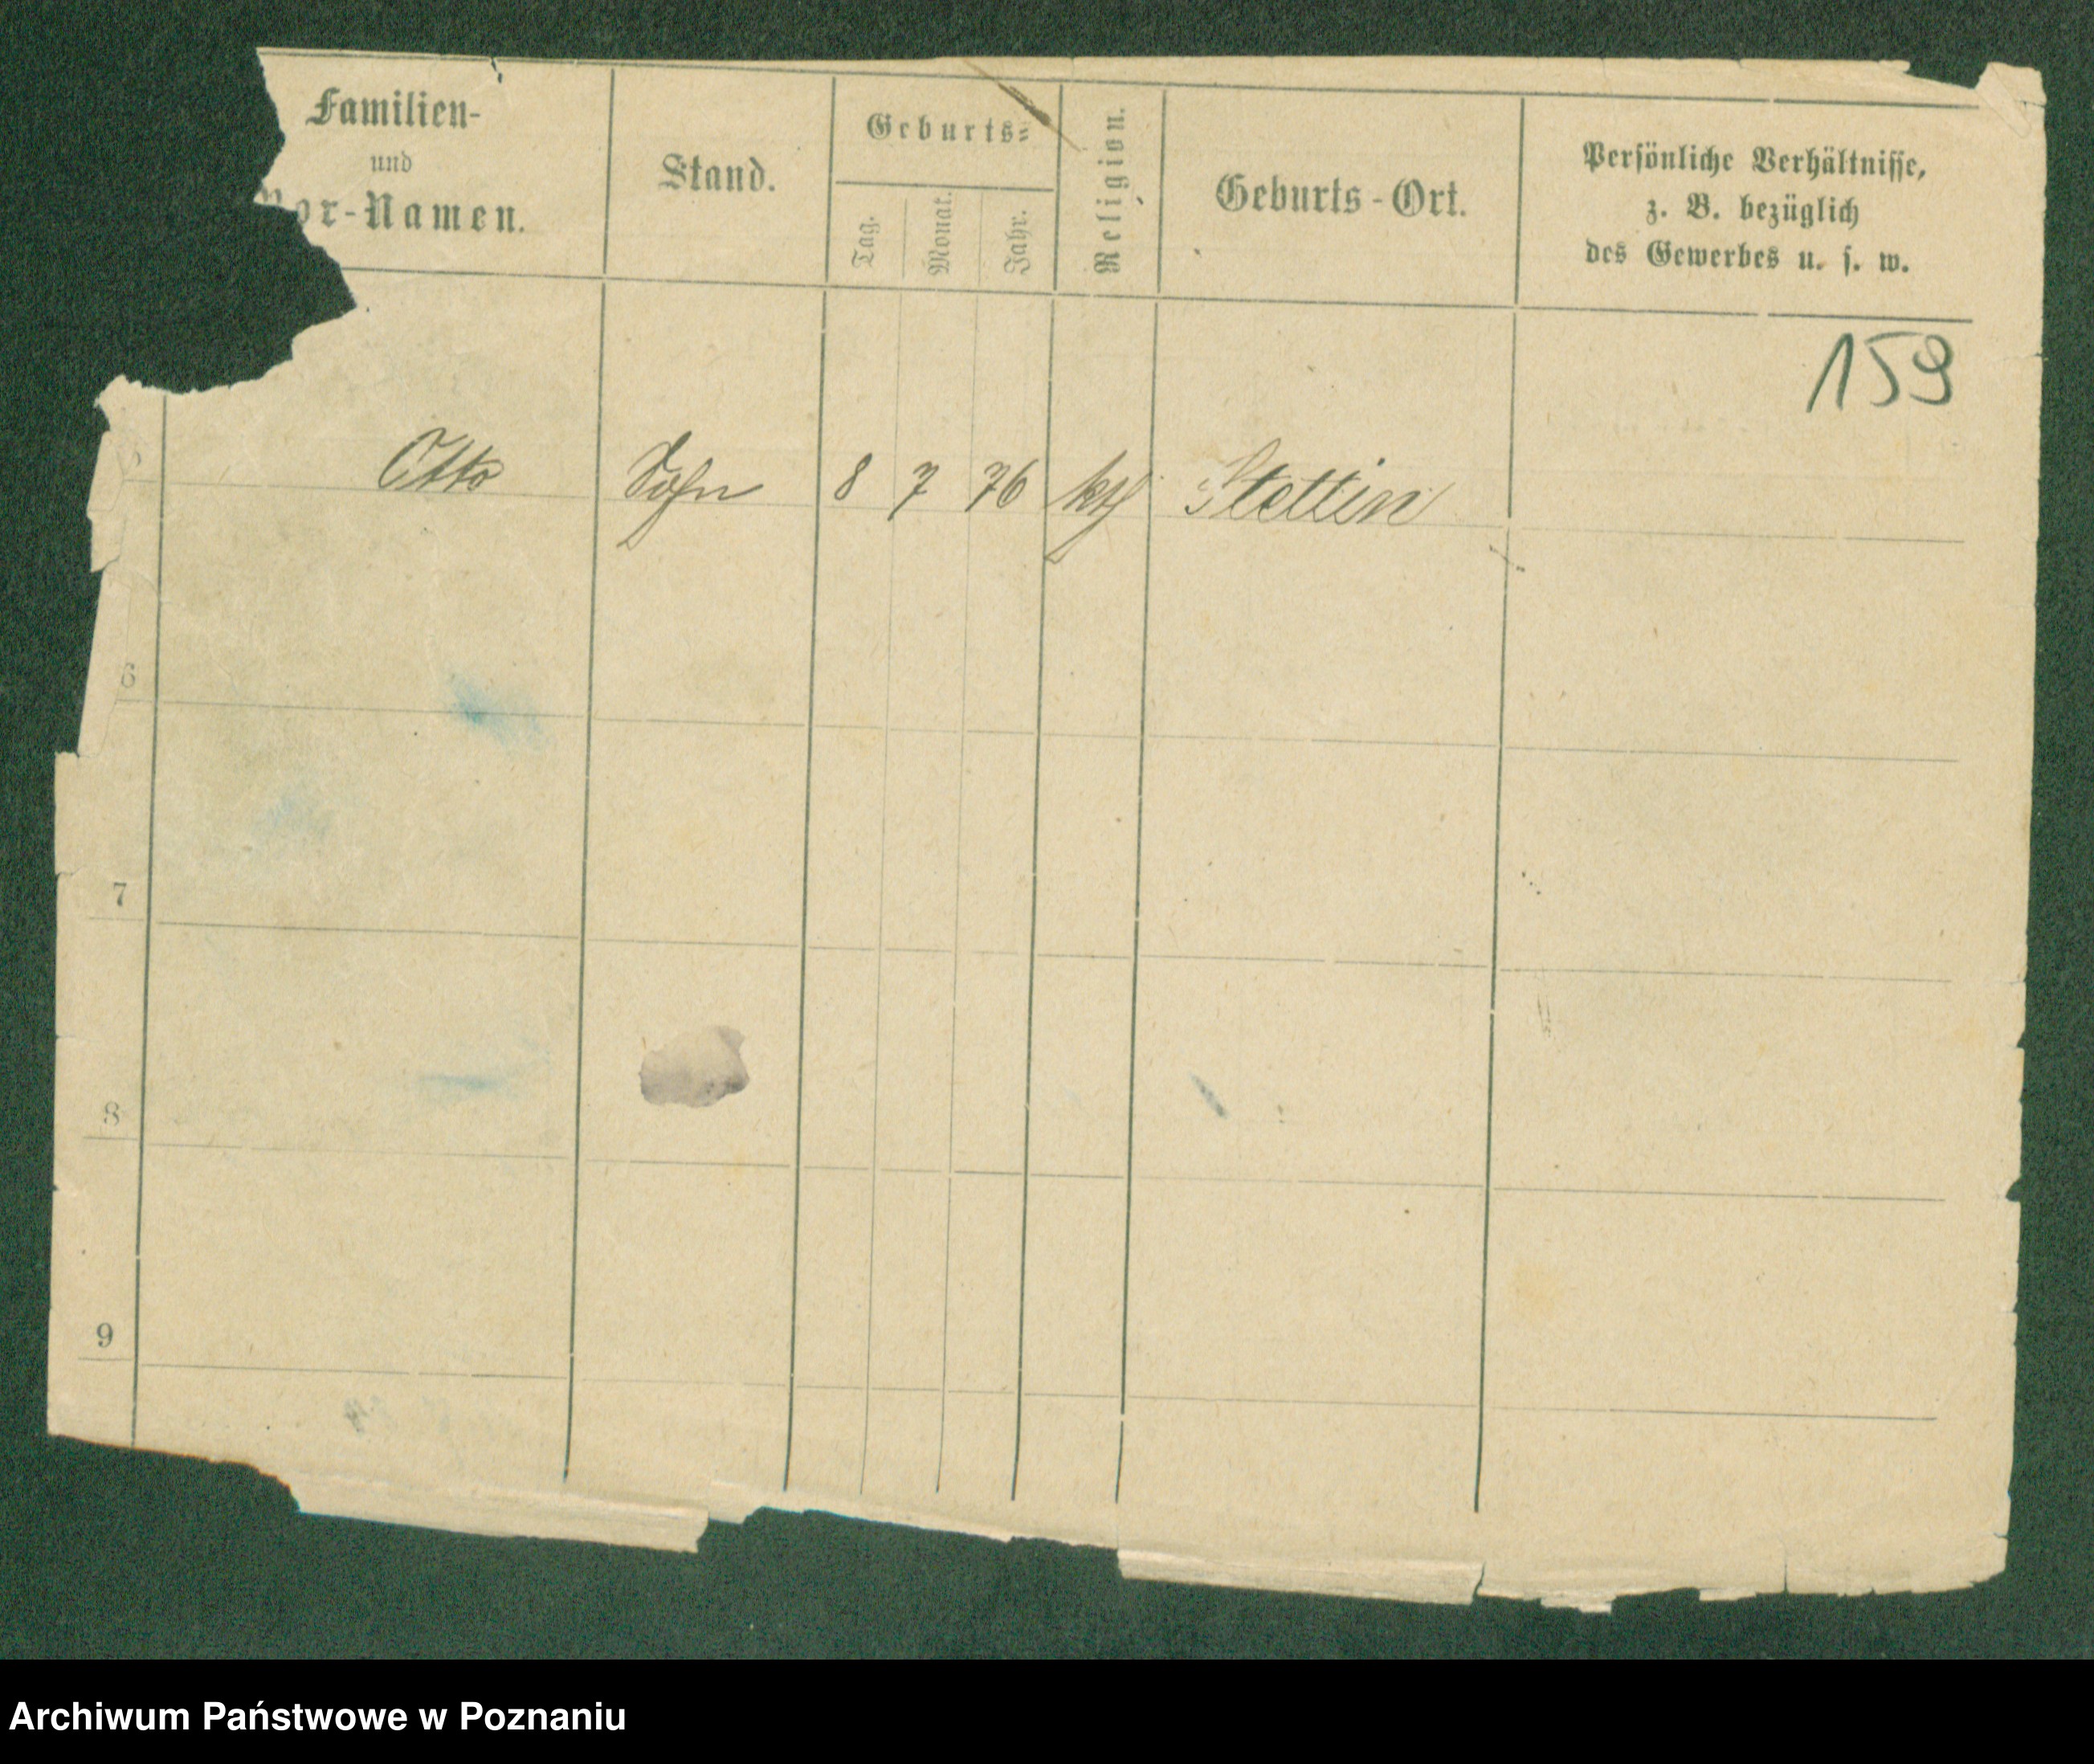 Familien-
und
Vor-Namen.
Stand.
Geburts-
Tag.
Monat.
Jahr.
Religion.
Geburts-Ort.
Persönliche Verhältnisse,
z. B. bezüglich
des Gewerbes u. s. w.
159
Otto Sohn 8 7 76 kth Stettin
6
7
8
9
Archiwum Państwowe w Poznaniu